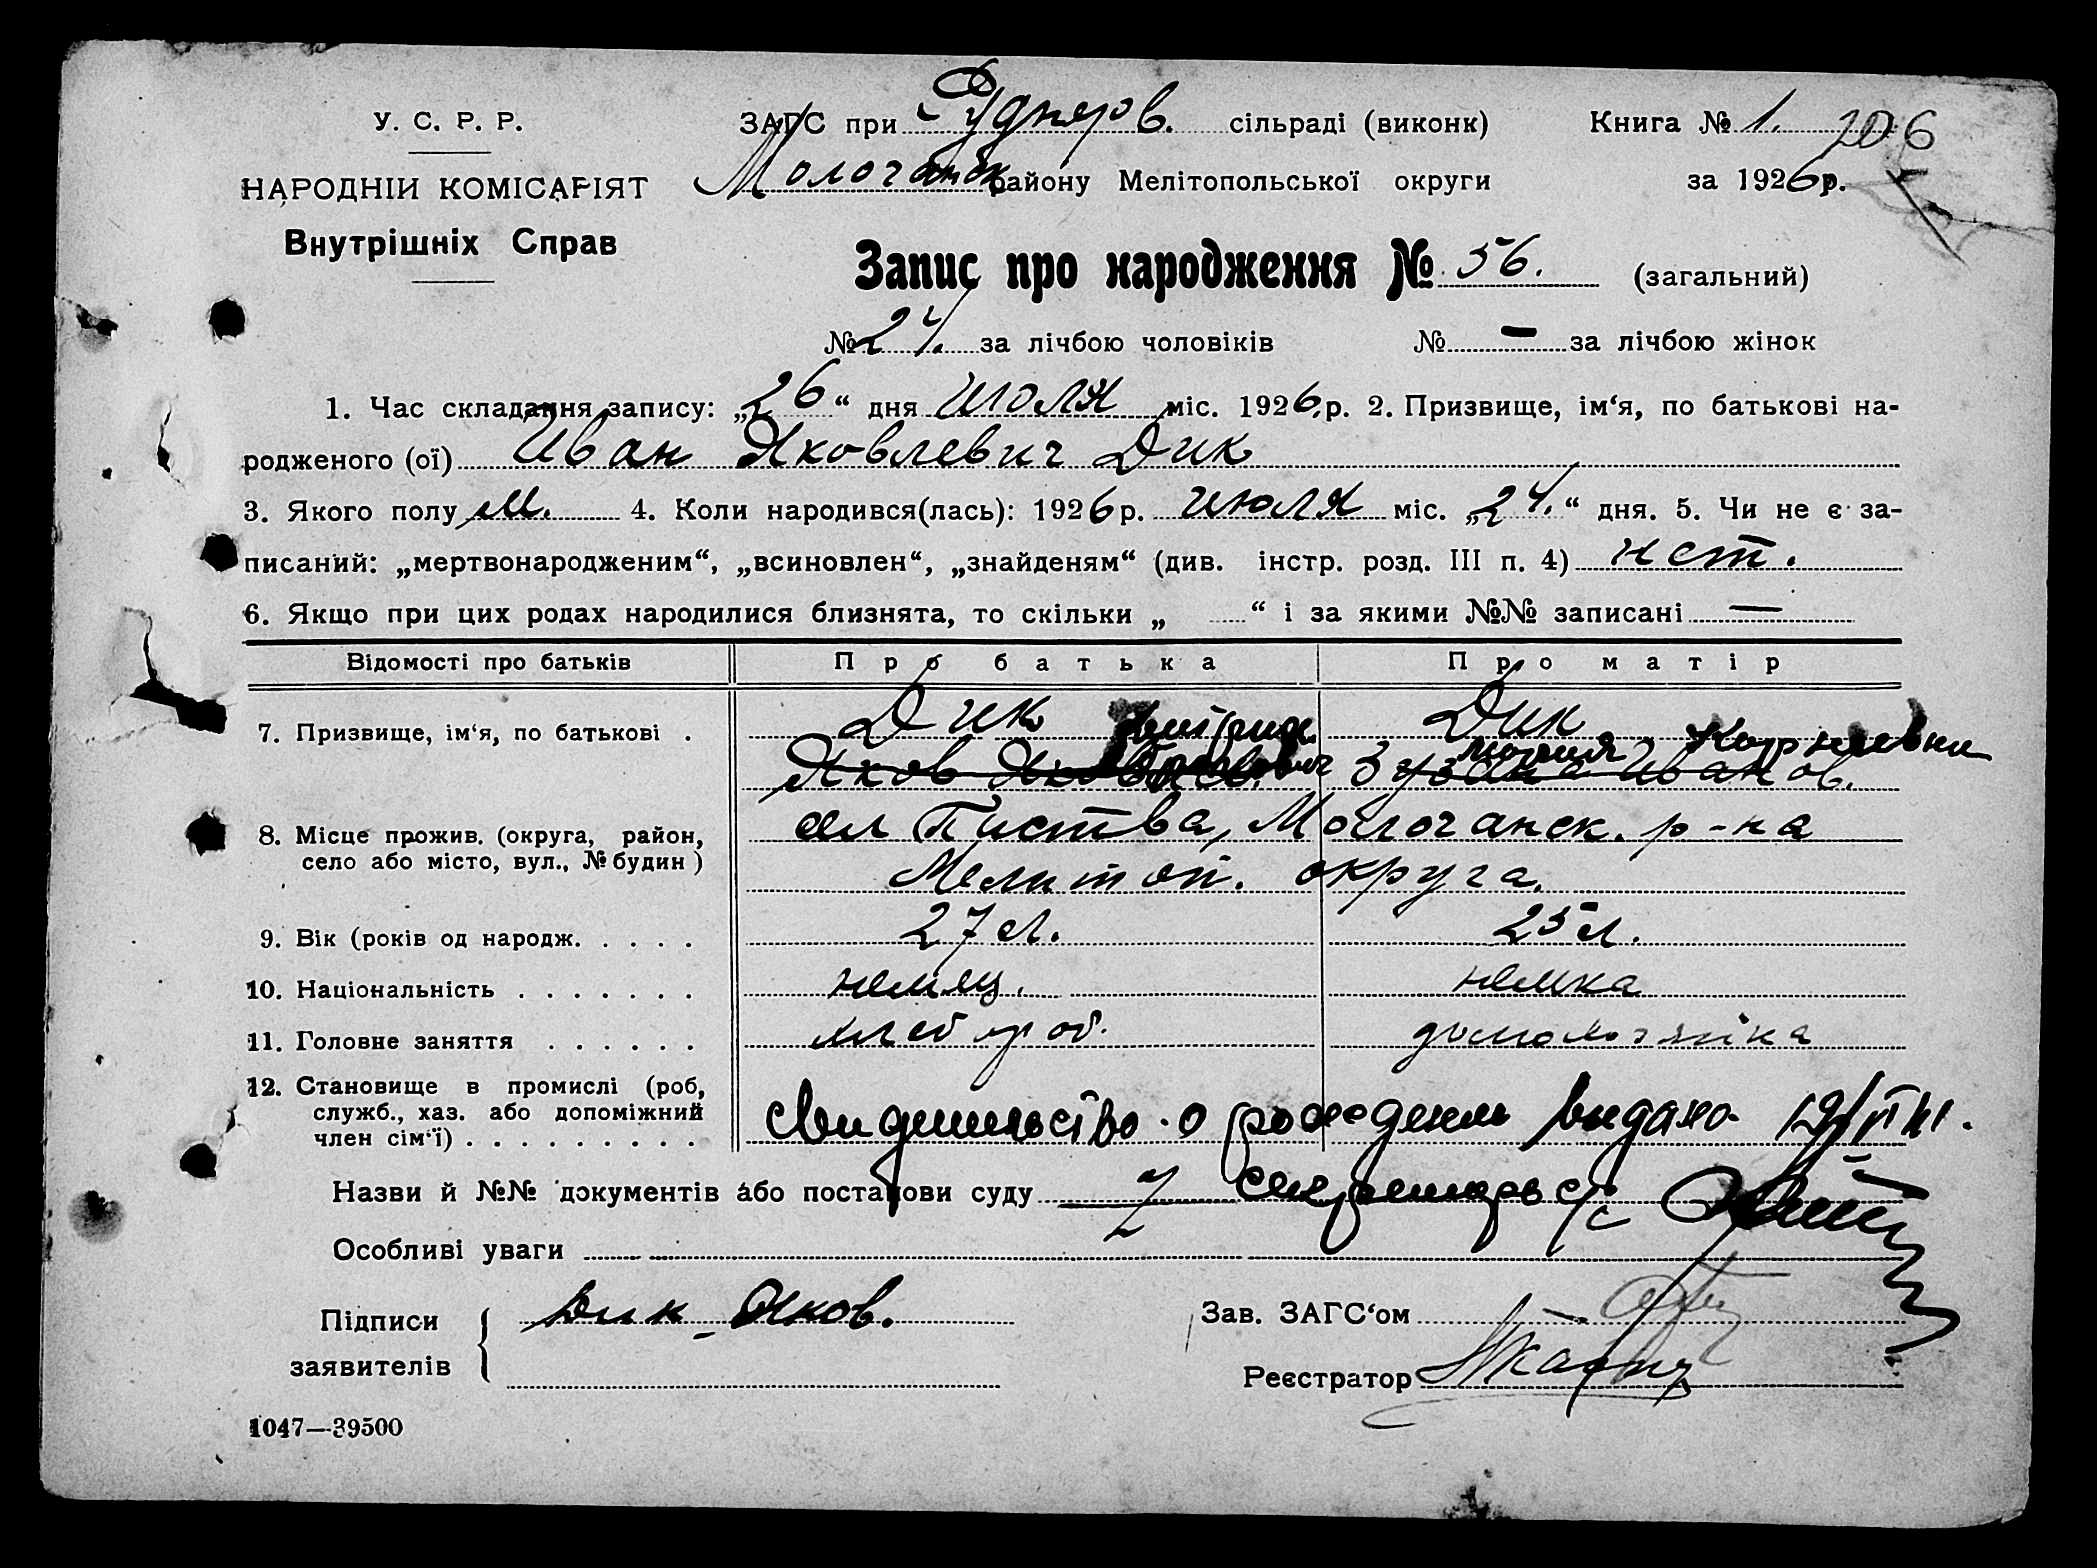 У. С. Р. Р.
НАРОДНІЙ КОМІСАРІЯТ
Внутрішніх Справ
ЗАГС при Руднеров. сільраді (виконк) Книга № 1. 206
Молочанск району Мелітопольської округи за 1926 р.
Запис про народження № 56. (загальний)
№ 24. за лічбою чоловіків № — за лічбою жінок
1. Час складання запису: „26“ дня июля міс. 1926 р. 2. Призвище, ім‘я, по батькові на-
родженого (ої) Иван Яковлевич Дик
3. Якого полу м. 4. Коли народився(лась): 1926 р. июля міс. „24.“ дня. 5. Чи не є за-
писаний: „мертвонародженим“, „всиновлен“, „знайденям“ (див. інстр. розд. III п. 4) нет.
6. Якщо при цих родах народилися близнята, то скільки „ “ і за якими №№ записані —
Відомості про батьків Про батька Про матір
7. Призвище, ім‘я, по батькові . Дик Дик
Мария Корнеевна
Яков Иванов.
8. Місце прожив. (округа, район,
село або місто, вул., № будин)
Молочанск. р-на
Мелитоп. округа.
9. Вік (років од народж. . . . . 27 л. 25 л.
10. Національність . . . . . . . немец. немка
11. Головне заняття . . . . . . хлебороб. домохозяйка
12. Становище в промислі (роб,
служб., хаз. або допоміжний
член сім‘ї) . . . . . . . . .
Свидетельство о рождении выдано 12/VIII.
Назви й №№ документів або постанови суду секретарь с/с
Особливі уваги
Підписи
заявителів
Дик Яков.
Зав. ЗАГС‘ом
Реєстратор
1047—39500